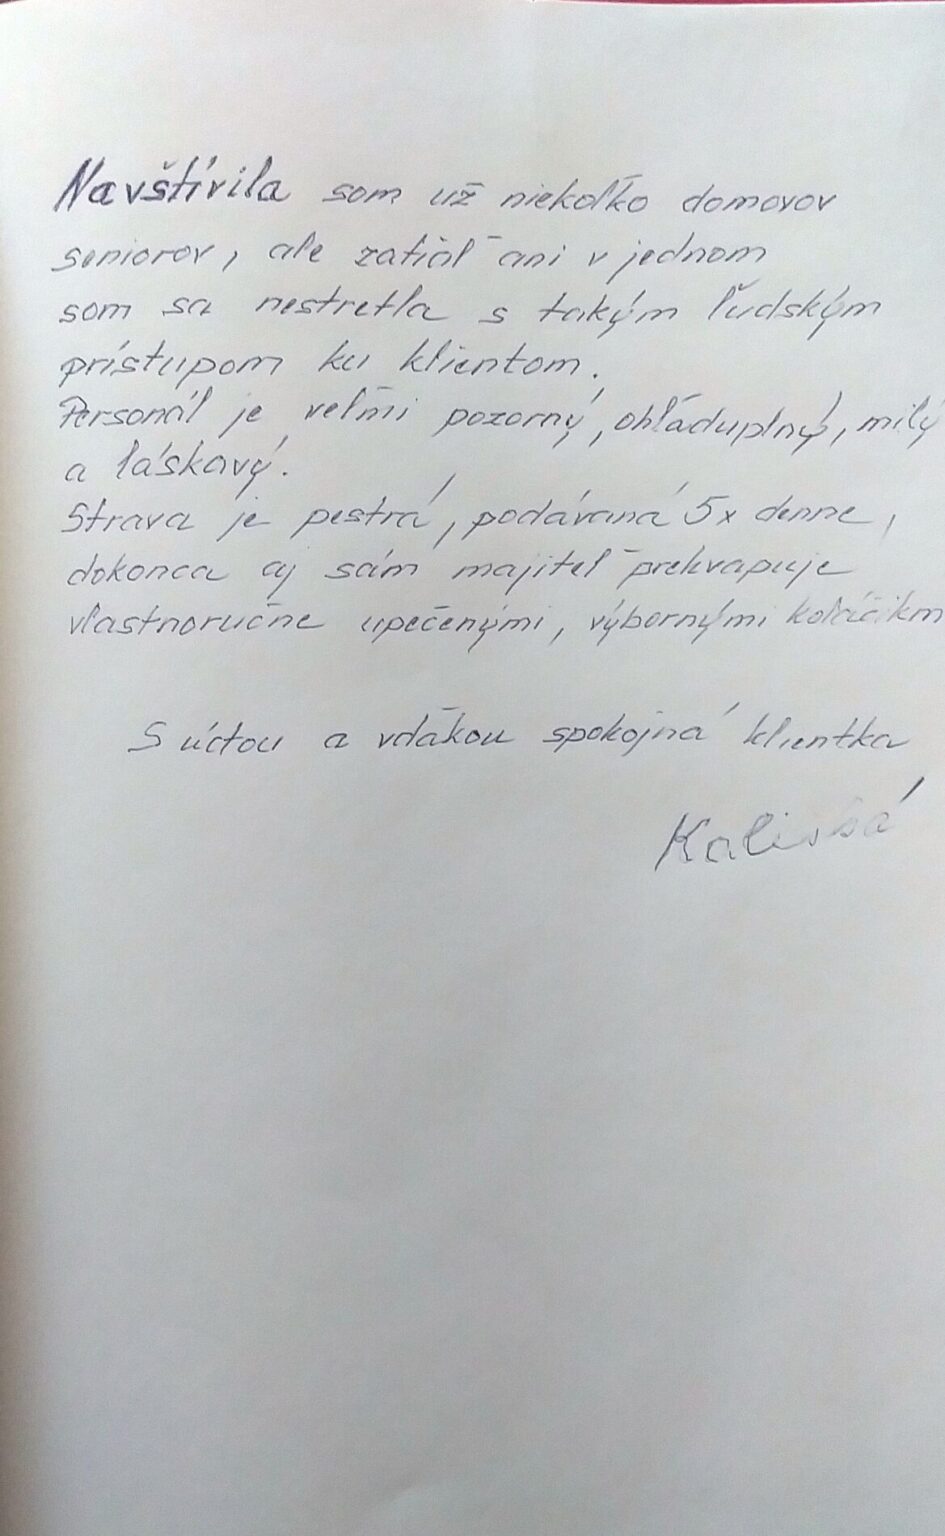 Navštívila som už niekoľko domovov
seniorov, ale zatiaľ ani v jednom
som sa nestretla s takým ľudským
prístupom ku klientom.
Personál je veľmi pozorný, ohľaduplný, milý
a láskavý.
Strava je pestrá, podávaná 5x denne,
dokonca aj sám majiteľ prekvapuje
vlastnoručne upečenými, výbornými koláčikm
S úctou a vďakou spokojná klientka